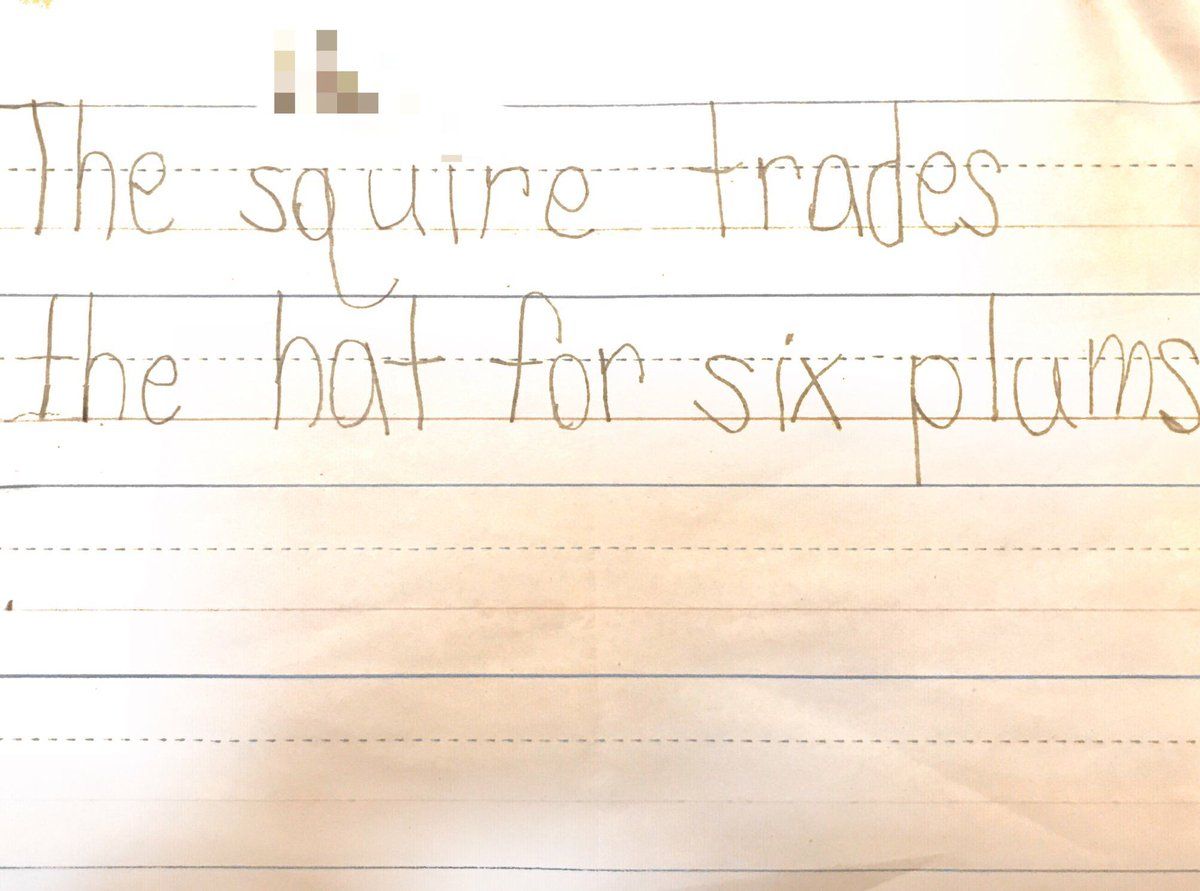 The squire trades
the hat for six plums